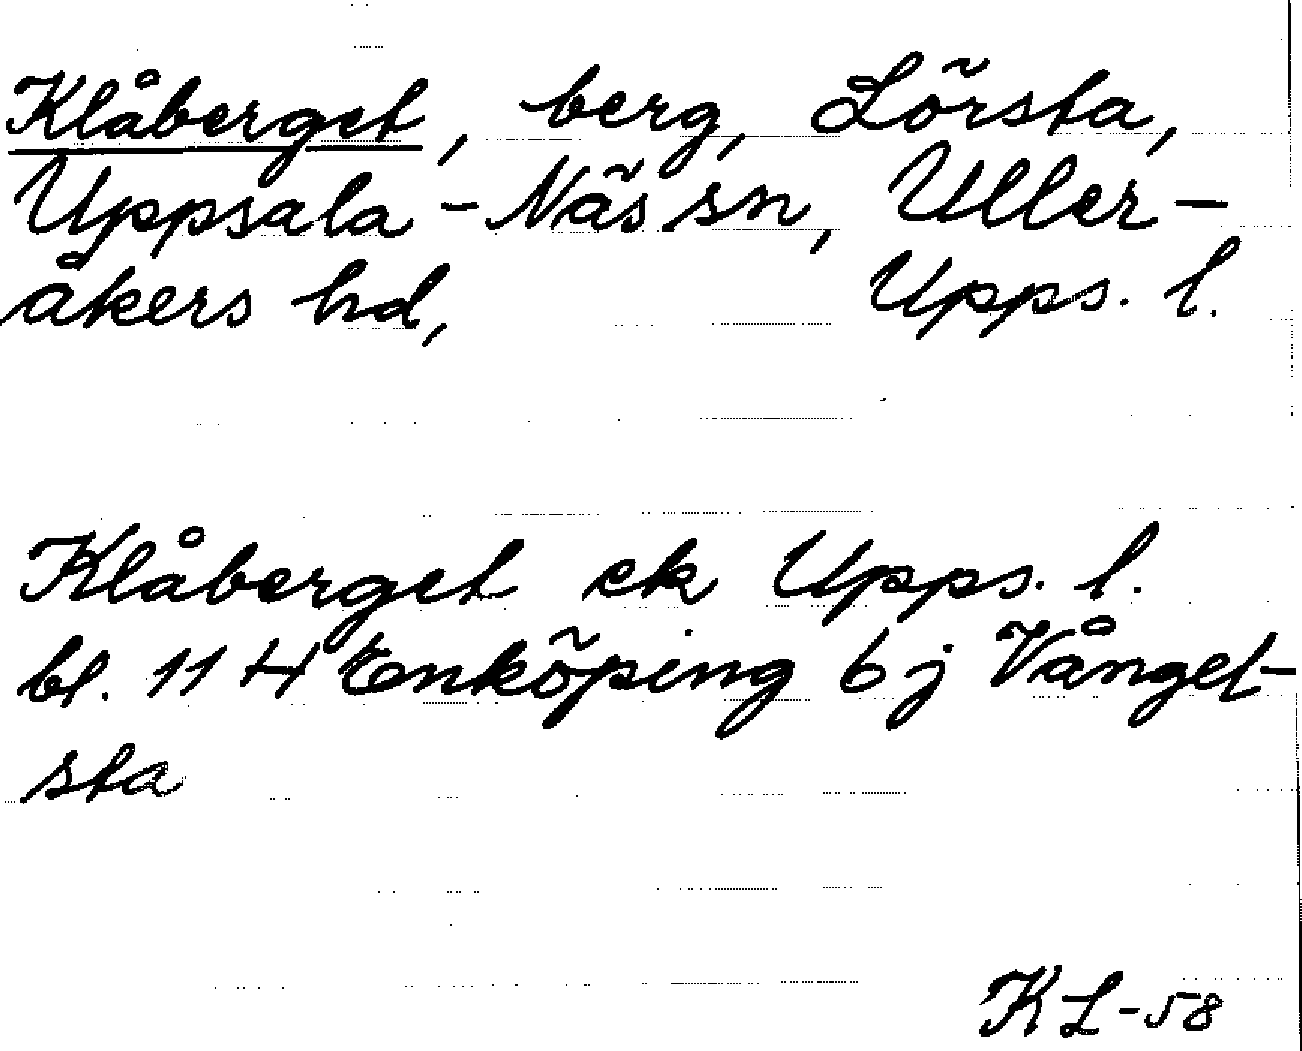 Klåberget, berg, Lörsta,
Uppsala-Näs sn, Uller-
åkers hd, Upps. l.
Klåberget ek Upps. l.
bl. 11 H Enköping 6 j Vånget-
sta
KL-58